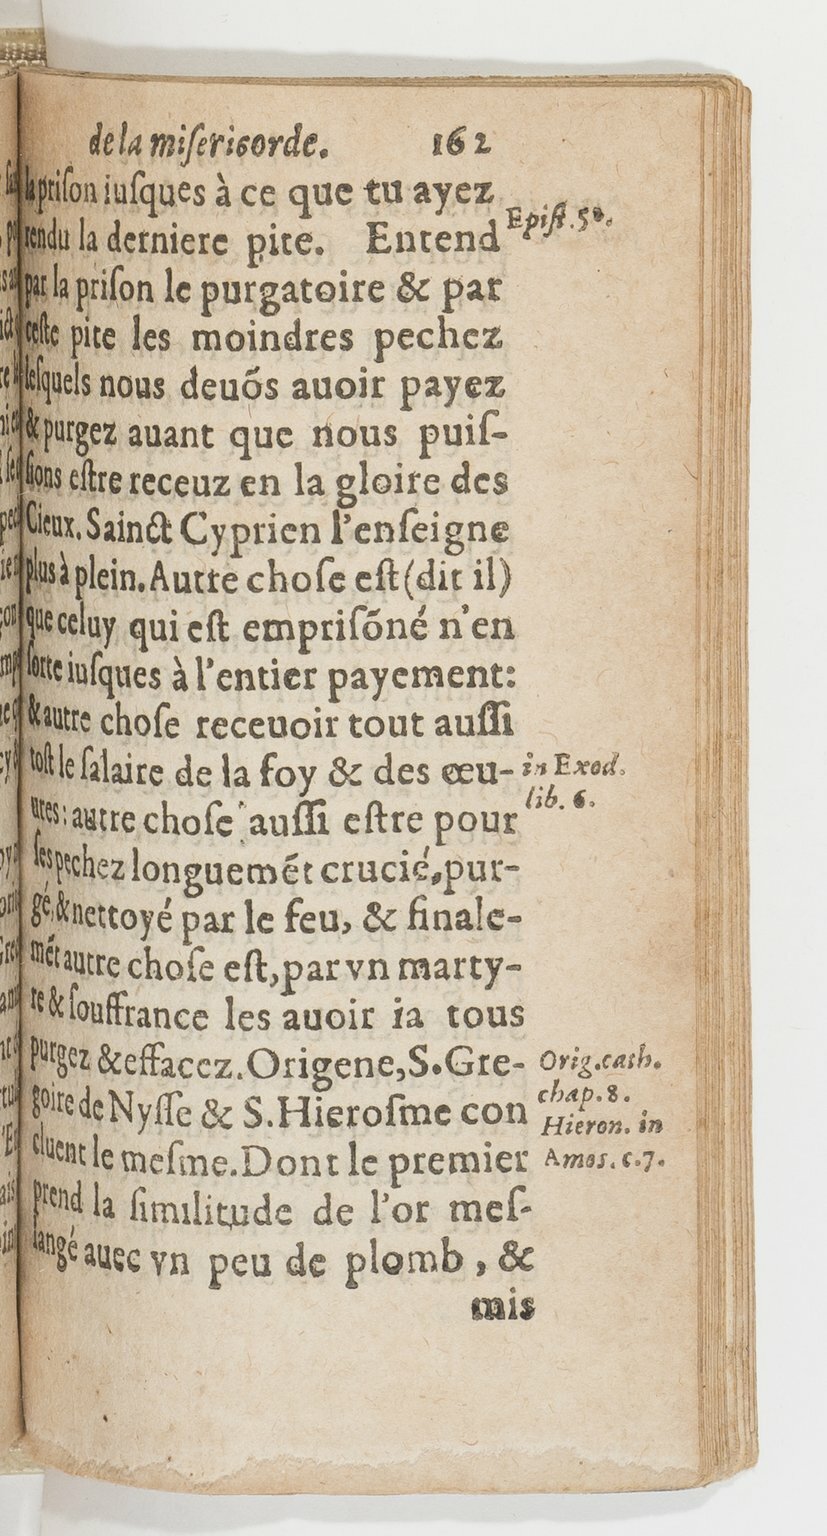 de la miſericorde. 162
la priſon iuſques à ce que tu ayez
rendu la derniere pite. Entend
Epiſt. 50.
par la priſon le purgatoire & par
ceſte pite les moindres pechez
leſquels nous deuõs auoir payez
& purgez auant que nous puiſ-
ſions eſtre receuz en la gloire des
Cieux. Sainct Cyprien l'enſeigne
plus à plein. Autre choſe eſt (dit il)
que celuy qui eſt empriſõné n'en
ſorte iuſques à l'entier payement:
& autre choſe receuoir tout auſſi
toſt le ſalaire de la foy & des œu-
in Exod.
lib. 6.
ures: autre choſe auſſi eſtre pour
ſes pechez longuemẽt crucié, pur-
gé, & nettoyé par le feu, & finale-
mẽt autre choſe eſt, par vn marty-
re & ſouffrance les auoir ia tous
purgez & effacez. Origene, S. Gre-
Orig. cath.
chap. 8.
goire de Nyſſe & S. Hieroſme con
Hieron. in
cluent le meſme. Dont le premier
Amos. c. 7.
prend la ſimilitude de l'or meſ-
langé auec vn peu de plomb, &
mis